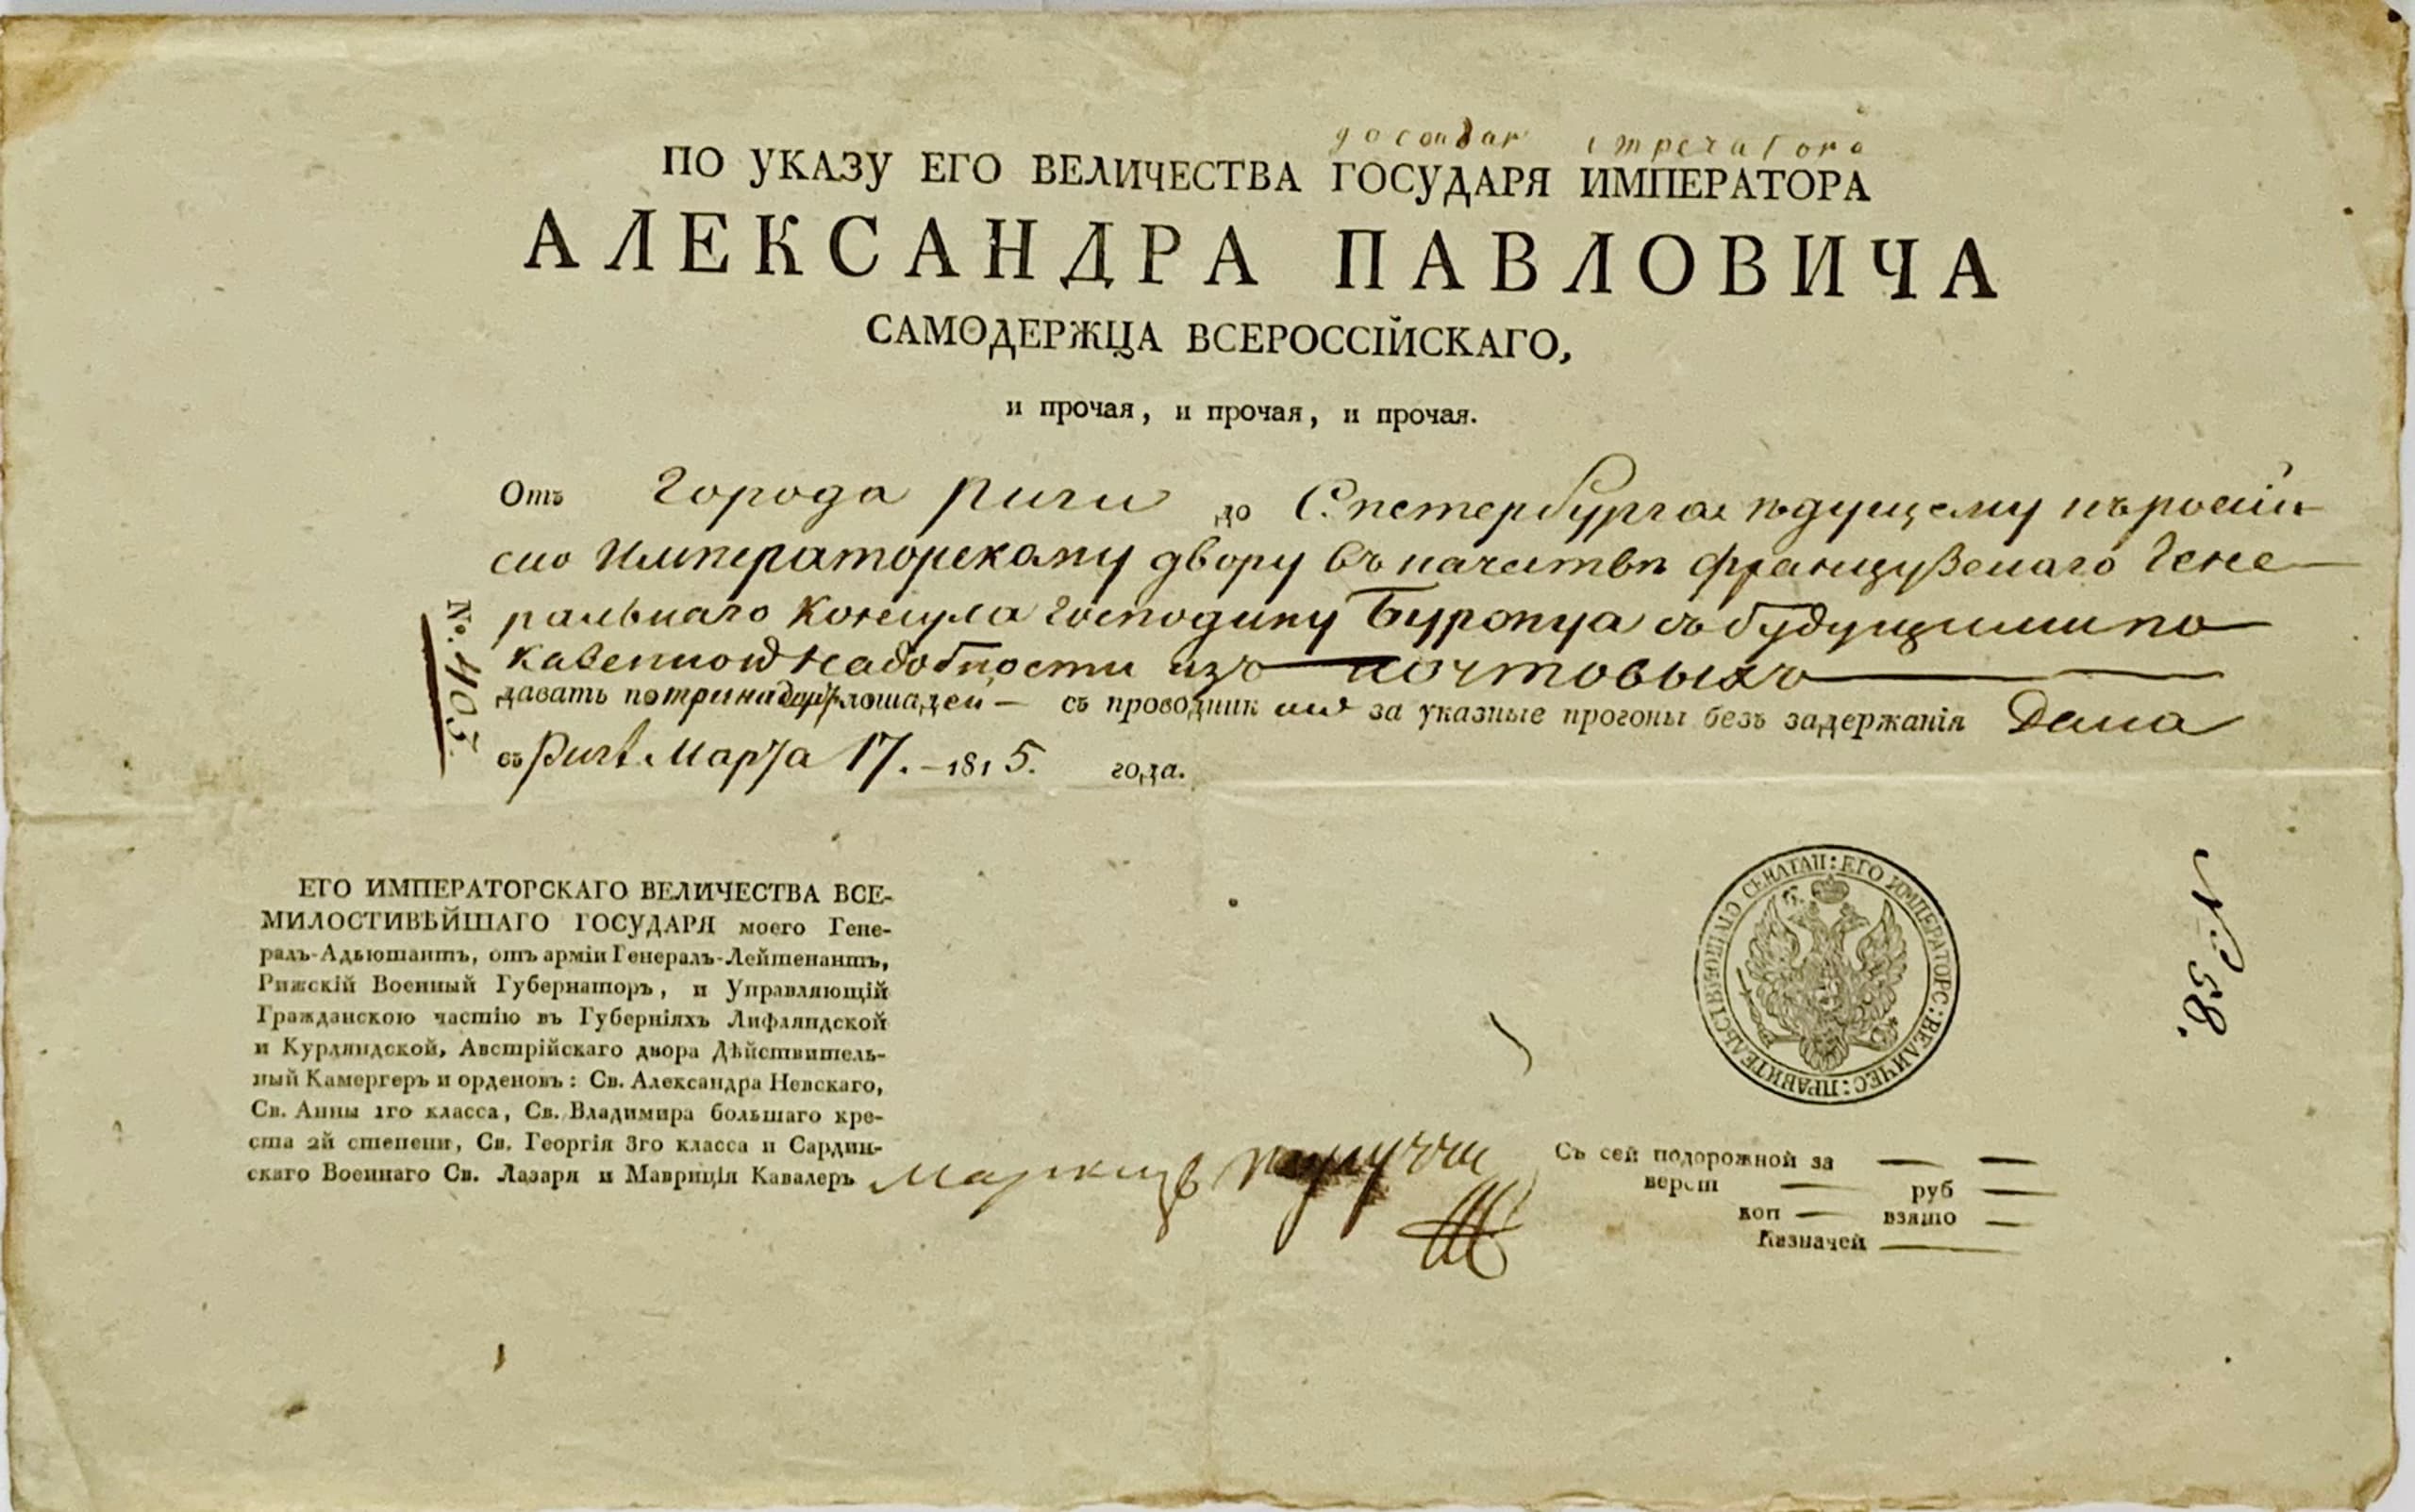 госондаr імреrаtоrа
ПО УКАЗУ ЕГО ВЕЛИЧЕСТВА ГОСУДАРЯ ИМПЕРАТОРА
АЛЕКСАНДРА ПАВЛОВИЧА
САМОДЕРЖЦА ВСЕРОССІЙСКАГО,
и прочая, и прочая, и прочая.
Отъ города риги до С.петербурга ѣдущему къ россіи
ско Императорскому двору въ качествѣ французскаго Гене
ральнаго Консула господину Буромуа съ будущими по
казенной надобности изъ почтовыхъ
давать по тринадцати лошадей — съ проводникими за указные прогоны безъ задержанія Дана
въ Ригѣ Марта 17. 1815. года.
No. 1105.
ЕГО ИМПЕРАТОРСКАГО ВЕЛИЧЕСТВА ВСЕ-
МИЛОСТИВѢЙШАГО ГОСУДАРЯ моего Гене-
ралъ-Адьютантъ, отъ арміи Генералъ-Лейтенантъ,
Рижскій Военный Губернаторъ, и Управляющій
Гражданскою частію въ Губерніяхъ Лифляндской
и Курляндской, Австрійскаго двора Дѣйствитель-
ный Камергеръ и орденовъ: Св. Александра Невскаго,
Св. Анны 1го класса, Св. Владимира большаго кре-
ста 2й степени, Св. Георгія 3го класса и Сардин-
скаго Военнаго Св. Лазаря и Маврицiя Кавалеръ Маркизъ паулуччи
ЕГО ИМПЕРАТОРС: ВЕЛИЧЕС: ПРАВИТЕЛЬСТВУЮЩАГО СЕНАТАП:
N. 58.
Съ сей подорожной за
верст руб
коп взято
Казначей